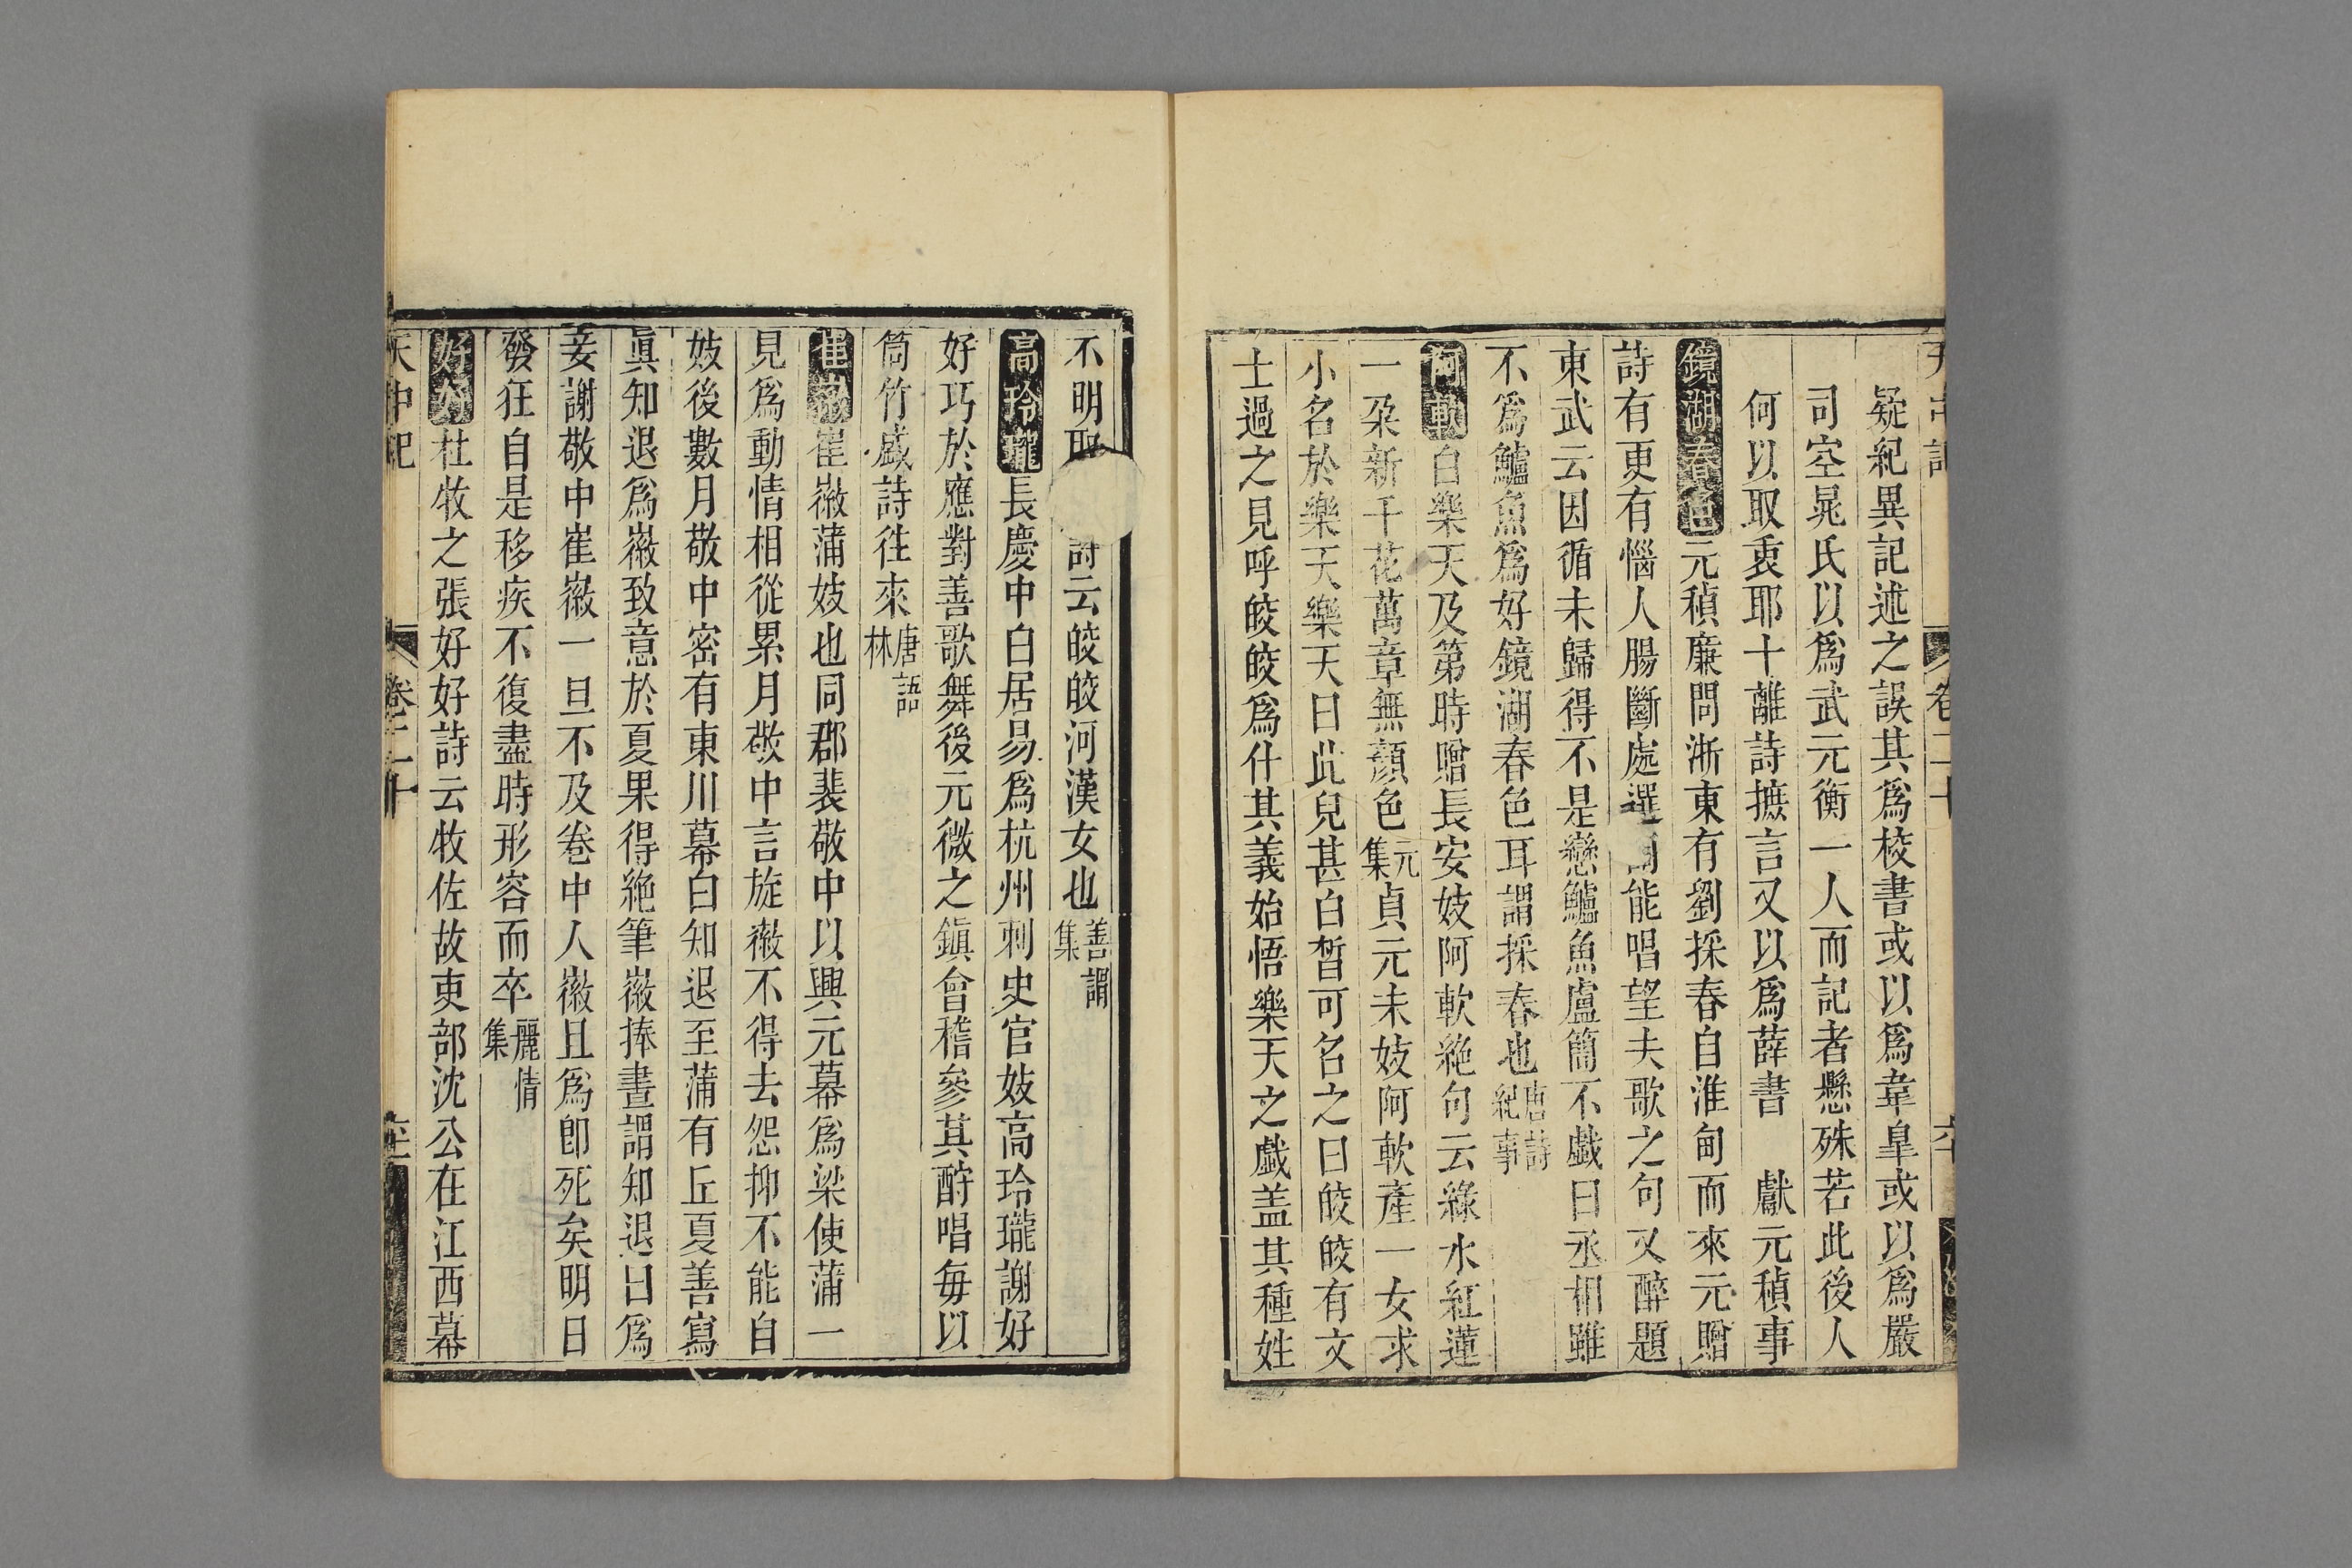 疑紀異記述之誤其爲校書或以爲韋皐或以爲嚴
司空晁氏以爲武元衡一人而記者懸殊若此後人
何以取衷耶十離詩摭言又以爲薛書 獻元稹事
鏡湖春色元稹廉問浙東有劉採春自淮甸而來元贈
詩有更有惱人腸斷處選能唱望夫歌之句又醉題
東武云因循未歸得不是戀鱸魚盧簡不戯曰丞相雖
不爲鱸魚爲好鏡湖春色耳謂採春也唐詩紀事
阿軟白樂天及第時贈長安妓阿軟絶句云綠水紅蓮
一朶新千花萬草無顔色元集貞元末妓阿軟產一女求
小名於樂天樂天曰此兒甚白皙可名之曰皎皎有文
士過之見呼皎皎爲什其義始悟樂天之戯盖其種姓
不明取詩云皎皎河漢女也善謔集
高玲瓏長慶中白居易爲杭州刺史官妓高玲瓏謝好
好巧於應對善歌舞後元微之鎮會稽參其酧唱每以
筒竹盛詩往來唐語林
崔徽崔徽蒲妓也同郡裴敬中以興元幕爲梁使蒲一
見爲動情相從累月敬中言旋徽不得去怨抑不能自
妓後數月敬中密有東川幕白知退至蒲有丘夏善寫
眞知退爲徽致意於夏果得絶筆徽捧書謂知退曰爲
妾謝敬中崔徽一旦不及卷中人徽且爲郎死矣明日
發狂自是移疾不復盡時形容而卒麗情集
好好杜牧之張好好詩云牧佐故吏部沈公在江西幕
天中記 卷二十